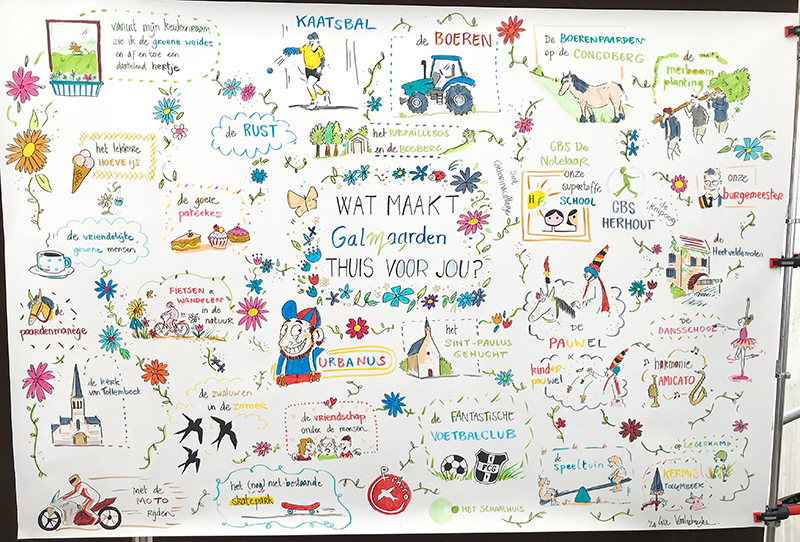 vanuit mijn keukenraam
zie ik de groene weides
en af en toe een
dartelend hertje
KAATSBAL
de BOEREN
De BOERENPAARDEN
op de CONGOBERG
de
meiboom
planting
het lekkere
HOEVEIJS
de RUST
het RASPAILLEBOS
en de BOSBERG
GBS De
Notelaar
onze
supertoffe
SCHOOL
Sint
Catharinacollege
GBS
HERHOUT
de
Knipoog
onze
burgemeester
de goeie
patéekes
de vriendelijke
gewone mensen
WAT MAAKT
Galmaarden
THUIS VOOR JOU?
de
Heetveldemolen
FIETSEN &
WANDELEN
in de
natuur
de
paardenmanège
URBANUS
het
SINT-PAULUS
GEHUCHT
DE
PAUWEL
kinder-
pauwel
DE
DANSSCHOOL
harmonie
AMICATO
de kerk
van Tollembeek
de zwaluwen
in de zomer
de vriendschap
onder de mensen
de FANTASTISCHE
VOETBALCLUB
FCG
de
speeltuin
op LEGERKAMP
KERMIS
TOLLEMBEEK
met de
MOTO
rijden
het (nog) niet-bestaande
skatepark
HET SCHAALHUIS